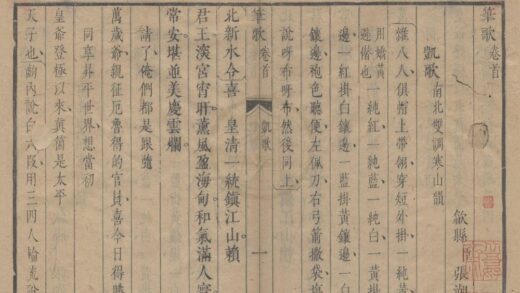 筆歌卷首
歙縣 張潮
凱歌 南北雙調寒山韻
雜八人俱帽上帶翎穿短外掛一純黃
用嬌黃一純紅一純藍一純白一黃掛
邊一紅掛白鑲邊一藍掛黃鑲邊一白
鑲邊袍色聽便左佩刀右弓箭撒袋
說呀布呀布然後同上
凱歌 一
北新水令喜 皇清一統鎮江山賴
君王 宮宵旰薰風盈海甸和氣滿人寰
常安堪並美慶雲爛
請了俺們都是跟隨
萬歲爺親征厄魯得的官員喜今日得勝
同享昇平世界想當初
皇爺登極以來真箇是太平
天子也劇內說白六段用三四人輪流說